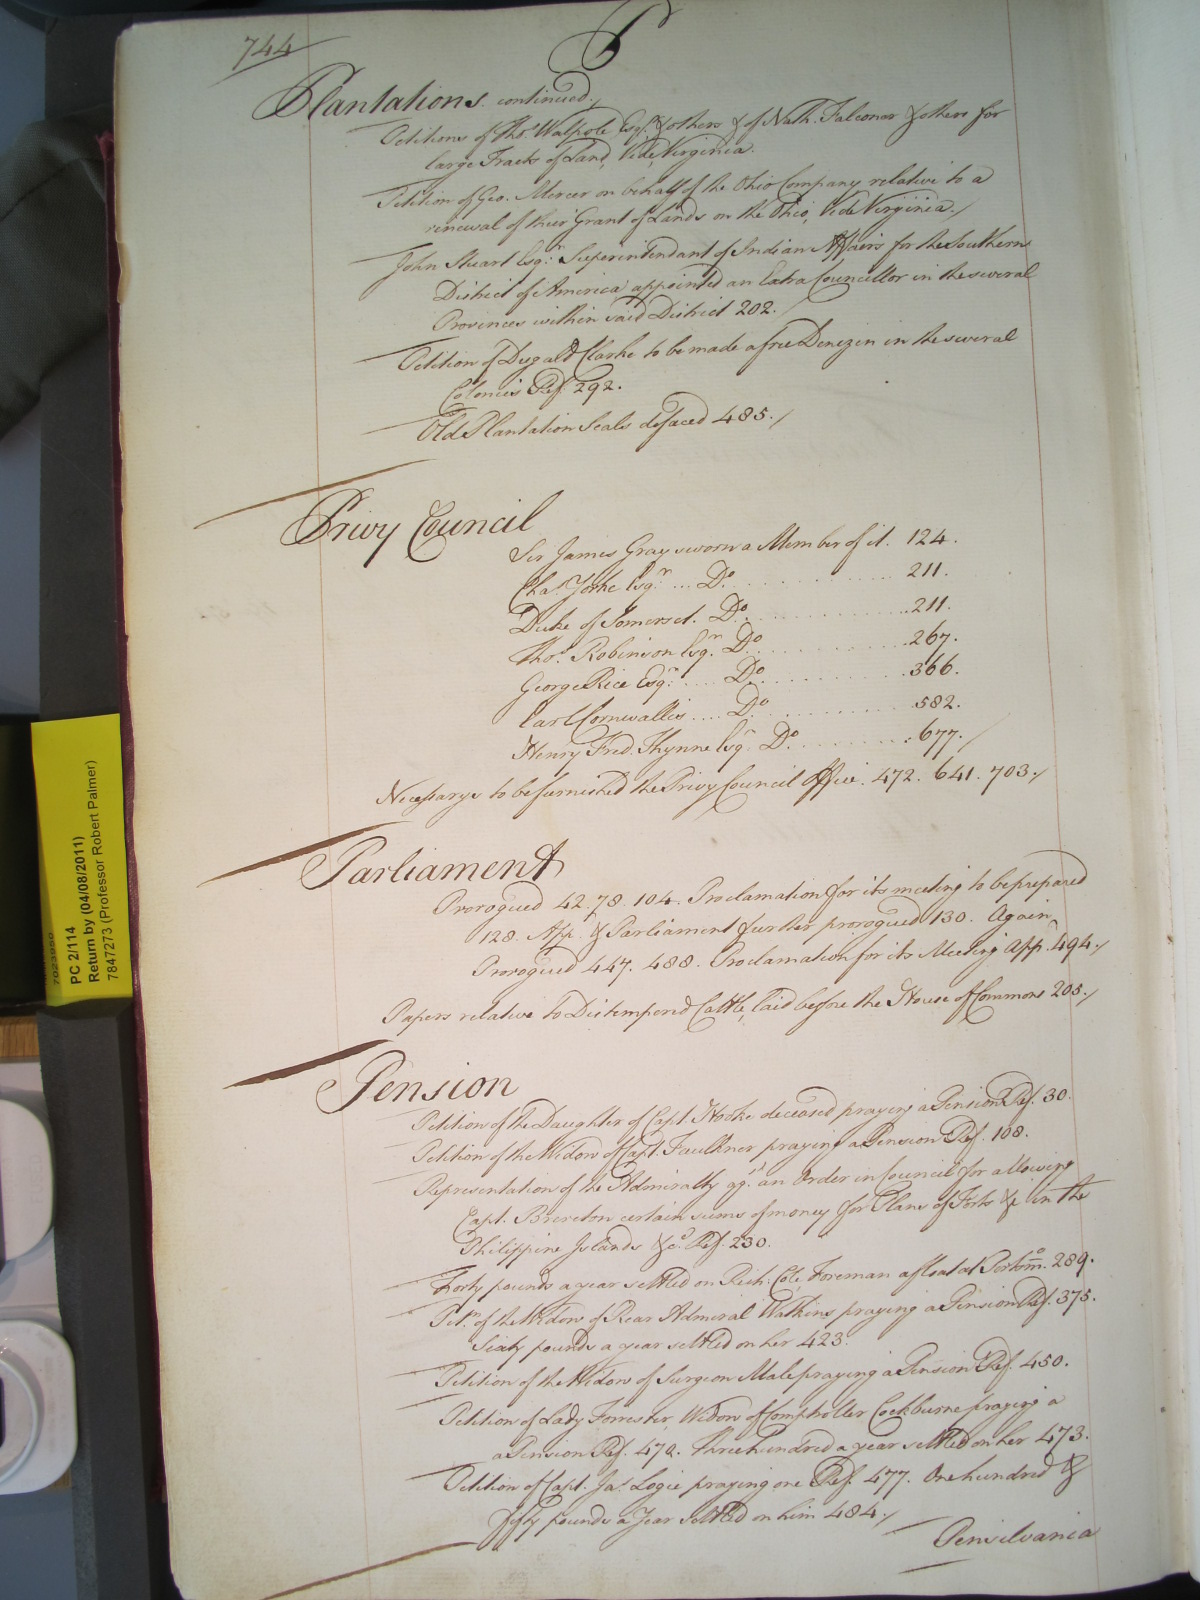 744
P
Plantations continued./
Petitions of Thos. Walpole Esqr. & others & of Nath. Falconer & others for
large Tracts of Land, Vide Virginia.
Petition of Geo. Mercer on behalf of the Ohio Company relative to a
renewal of their Grant of Lands on the Ohio, Vide Virginia./
John Stuart Esqr. Superintendant of Indian Affairs for the Southern
District of America appointed an Extra Councellor in the several
Provinces within said District 202./
Petition of Dugald Clarke to be made a free Denizen in the several
Colonies Ref. 292.
Old Plantation Seals defaced 485./
Privy Council
Sir James Gray sworn a Member of it. 124.
Chas. Yorke Esqr. ... Do. 211.
Duke of Somerset. Do. 211.
Thos. Robinson Esqr. Do 267.
George Rice Esqr. .... Do. 366.
Earl Cornwallis .... Do 582.
Henry Fred. Thynne Esqr. Do. 677./
Necessarys to be furnished the Privy Council Office. 472. 641. 703./
Parliament
Prorogued 42. 78. 104. Proclamation for its meeting to be prepared
128. App. & Parliament further prorogued 130. Again
Prorogued 447. 488. Proclamation for its Meeting App. 494./
Papers relative to Distempered Cattle, laid before the House of Commons 205./
Pension
Petition of the Daughter of Capt. Hooke deceased praying a Pension Ref. 30.
Petition of the Widow of Capt. Faulkner praying a Pension Ref. 108.
Representation of the Admiralty agst. an Order in Council for allowing
Capt. Brereton certain sums of money for Plans of Forts &c in the
Philippine Islands &ca. Ref. 230.
Forty pounds a year settled on Rich. Cole Foreman afloat at Portsmo. 289.
Petn. of the Widow of Rear Admiral Watkins praying a Pension Ref. 375.
Sixty pounds a year settled on her 423.
Petition of the Widow of Surgeon Male praying a Pension Ref. 450.
Petition of Lady Forrester, Widow of Comptroller Cockburne praying a
a Pension Ref. 472. Three hundred a year settled on her 473.
Petition of Capt. Jas. Logie praying one Ref. 477. One hundred &
fifty pounds a Year settled on him 484./
Pensilvania
7023950
PC 2/114
Return by (04/08/2011)
7847273 (Professor Robert Palmer)